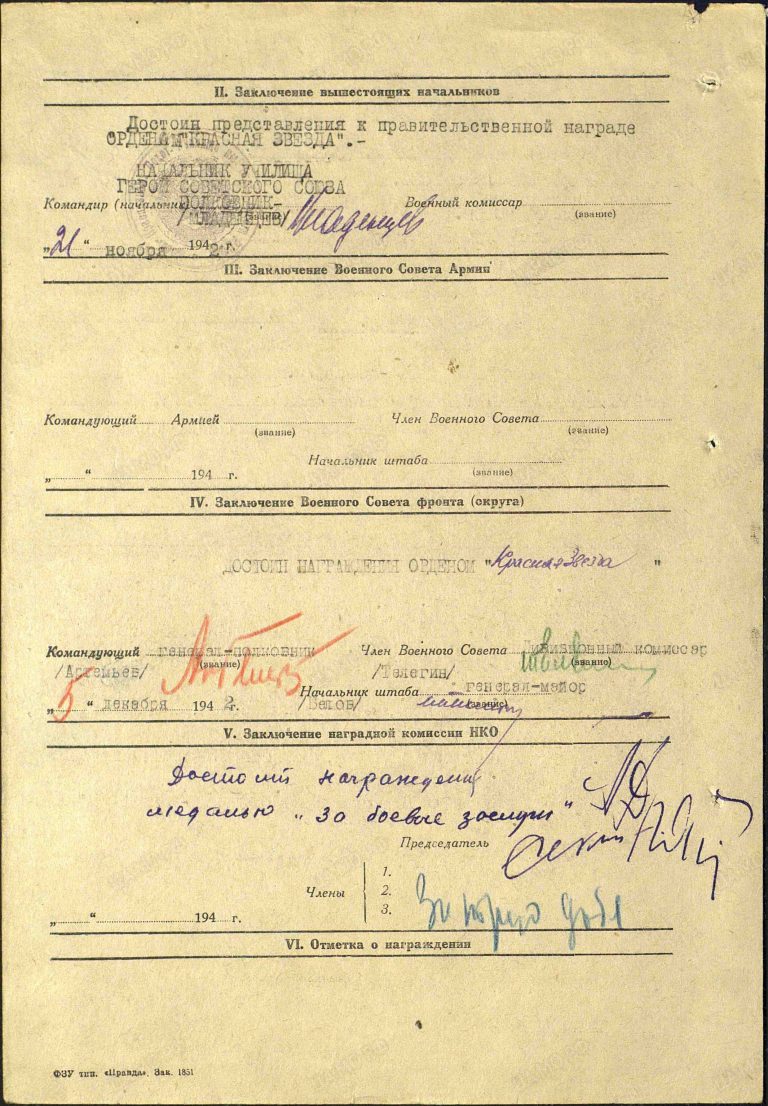 II. Заключение вышестоящих начальников
Достоин представления к правительственной награде
ОРДЕНА "КРАСНАЯ ЗВЕЗДА".-
НАЧАЛЬНИК УЧИЛИЩА
ГЕРОЙ СОВЕТСКОГО СОЮЗА
Командир (начальник) ПОЛКОВНИК- Военный комиссар
(звание) (звание)
/МЛАДЕНЦЕВ/ Младенцев
„21“ ноября 1942 г.
III. Заключение Военного Совета Армии
Командующий Армией Член Военного Совета
(звание) (звание)
Начальник штаба
(звание)
„ “ 194 г.
IV. Заключение Военного Совета фронта (округа)
ДОСТОИН НАГРАЖДЕНИЯ ОРДЕНОМ "Красная Звезда"
Командующий генерал-полковник Член Военного Совета Дивизионный комиссар
(звание) (звание)
/Артемьев/ /Телегин/
Начальник штаба генерал-майор
(звание)
„5“ декабря 1942 г. /Белов/
V. Заключение наградной комиссии НКО
Достоин награждения
медалью „За боевые заслуги"
Председатель
Члены
1.
2.
3.
„ “ 194 г.
VI. Отметка о награждении
ФЗУ тип. «Правда». Зак. 1851